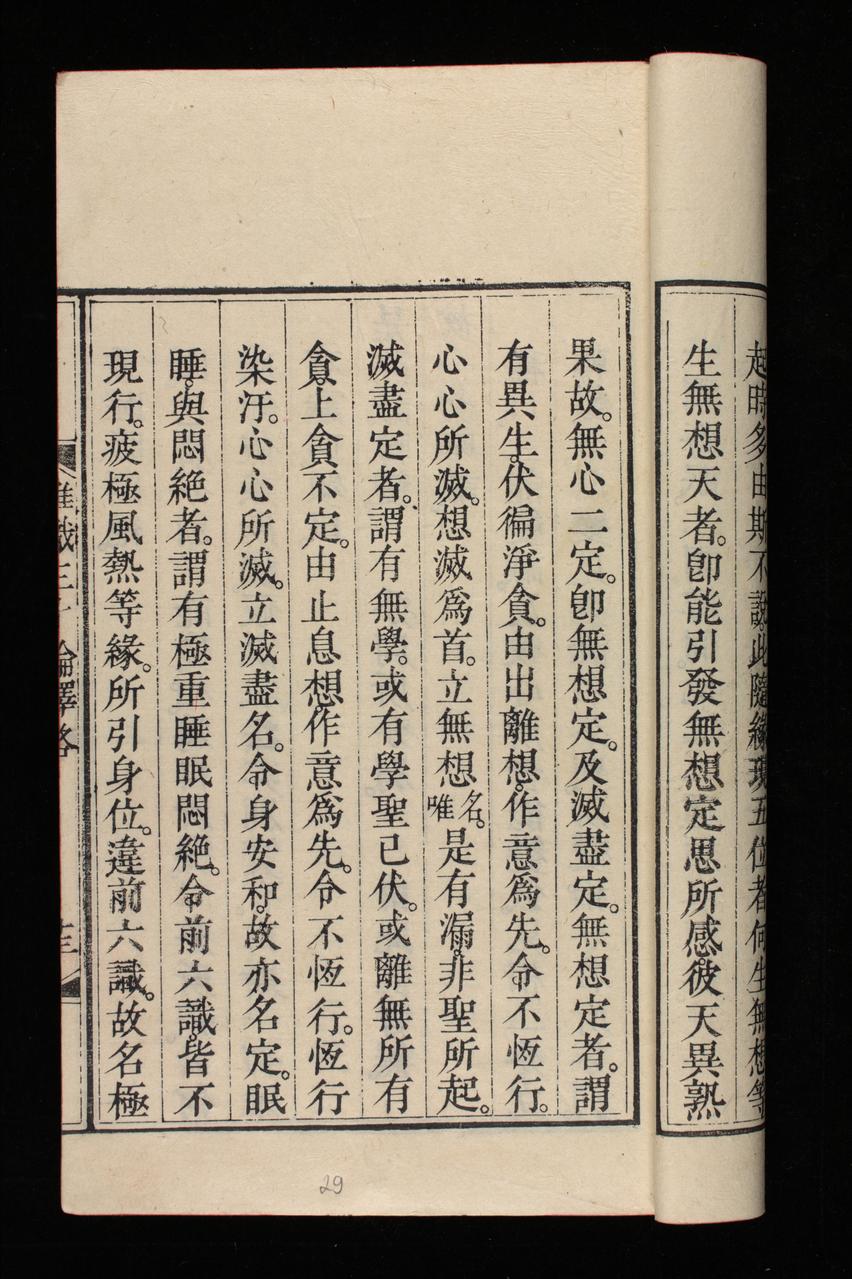 起時多由斯不說此隨緣現五位者何生無想等
生無想天者。卽能引發無想定思所感。彼天異熟
果故。無心二定。卽無想定。及滅盡定。無想定者。謂
有異生。伏徧淨貪。由出離想。作意爲先。令不恆行。
心心所滅。想滅爲首。立無想名。唯是有漏。非聖所起。
滅盡定者。謂有無學。或有學聖已伏。或離無所有
貪。上貪不定。由止息想。作意爲先。令不恆行。恆行
染汙。心心所滅。立滅盡名。令身安和。故亦名定。眠
睡。與悶絶者。謂有極重睡眠悶絶。令前六識。皆不
現行。疲極風熱等緣。所引身位。違前六識。故名極
唯識三十論釋略
29